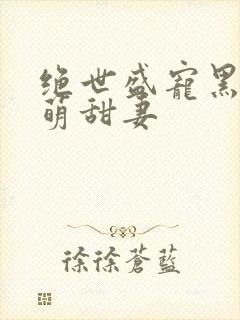 绝世盛宠黑
萌甜妻
徐徐蒼藍